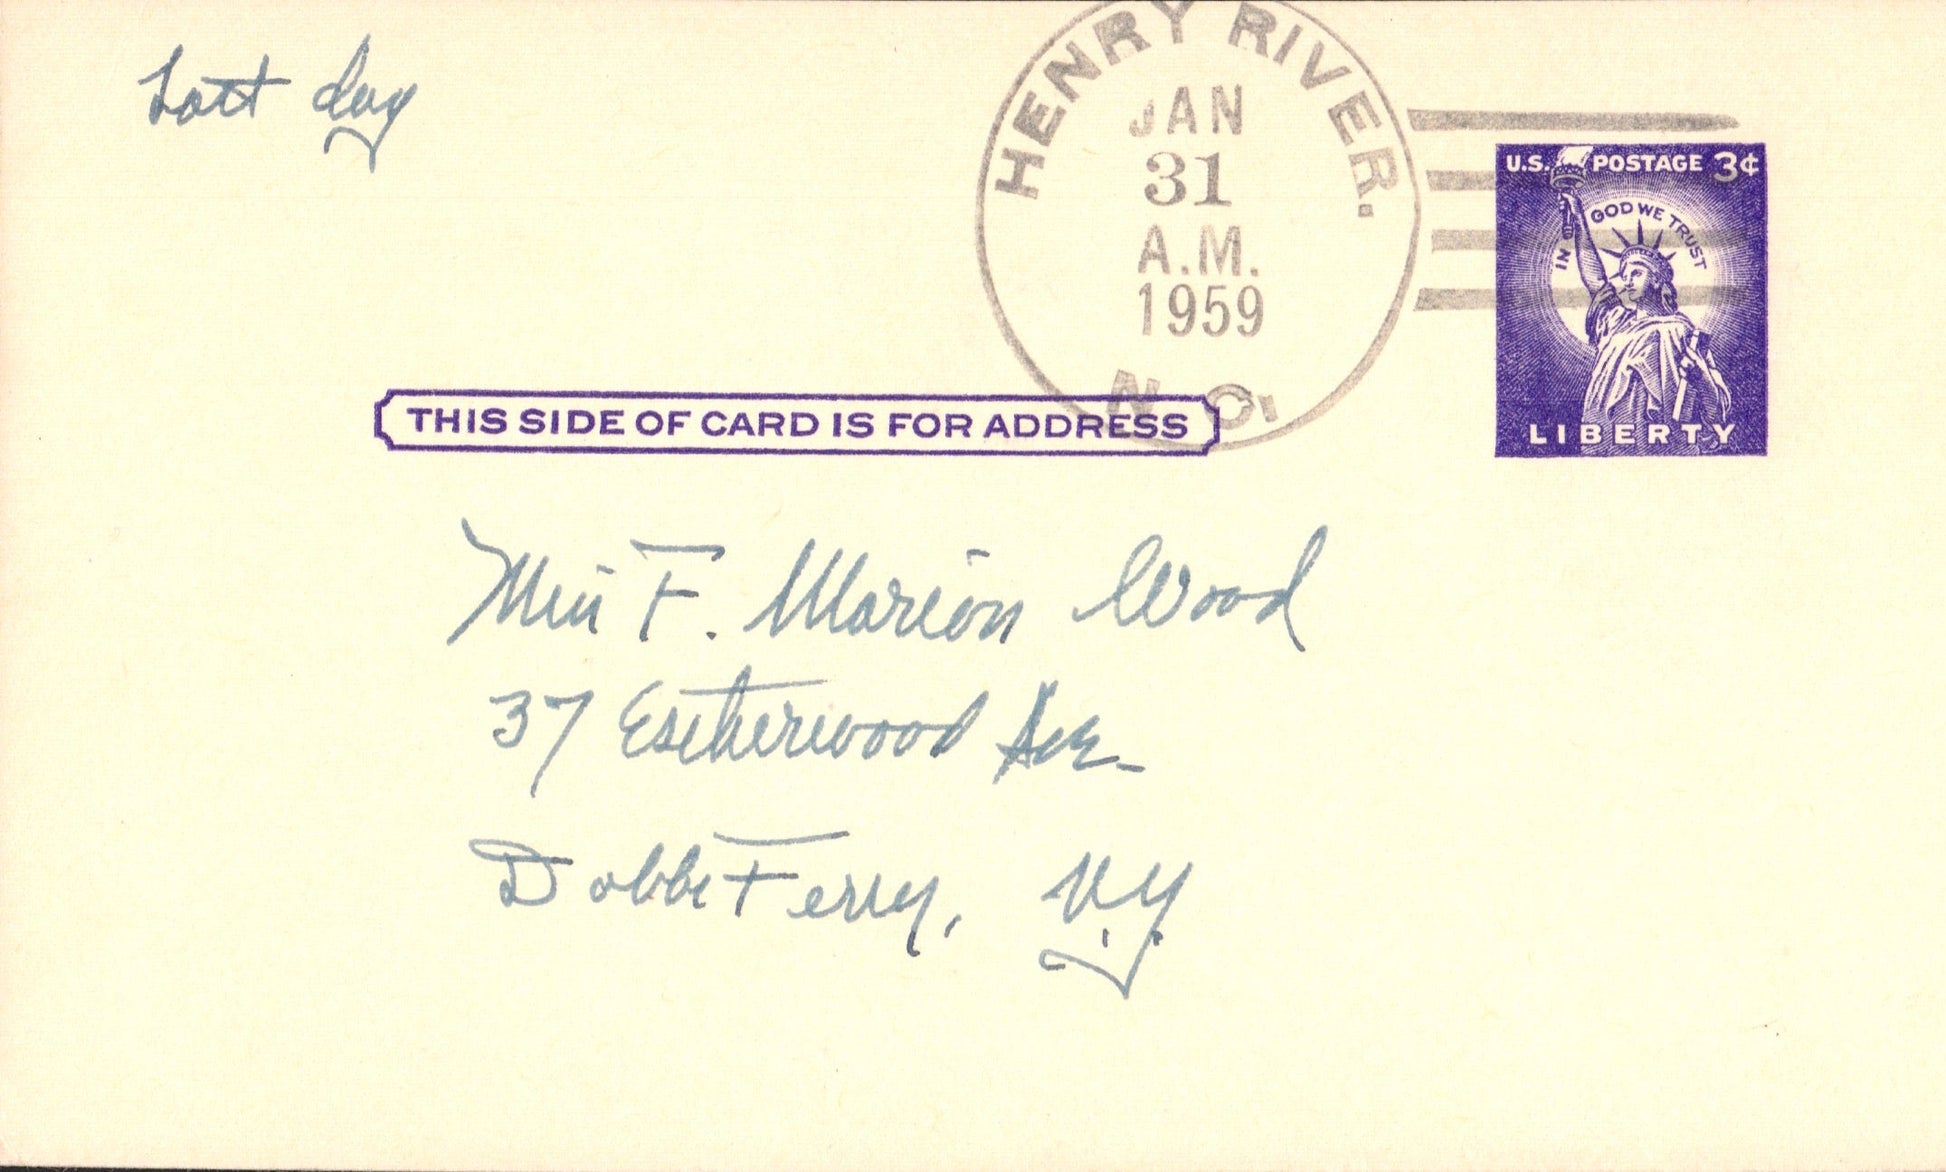 Last day
HENRY RIVER.
JAN
31
A.M.
1959
N. C.
U.S. POSTAGE 3¢
IN GOD WE TRUST
LIBERTY
THIS SIDE OF CARD IS FOR ADDRESS
Miss F. Marion Wood
37 Estherwood Ave.
Dobbs Ferry, N.Y.